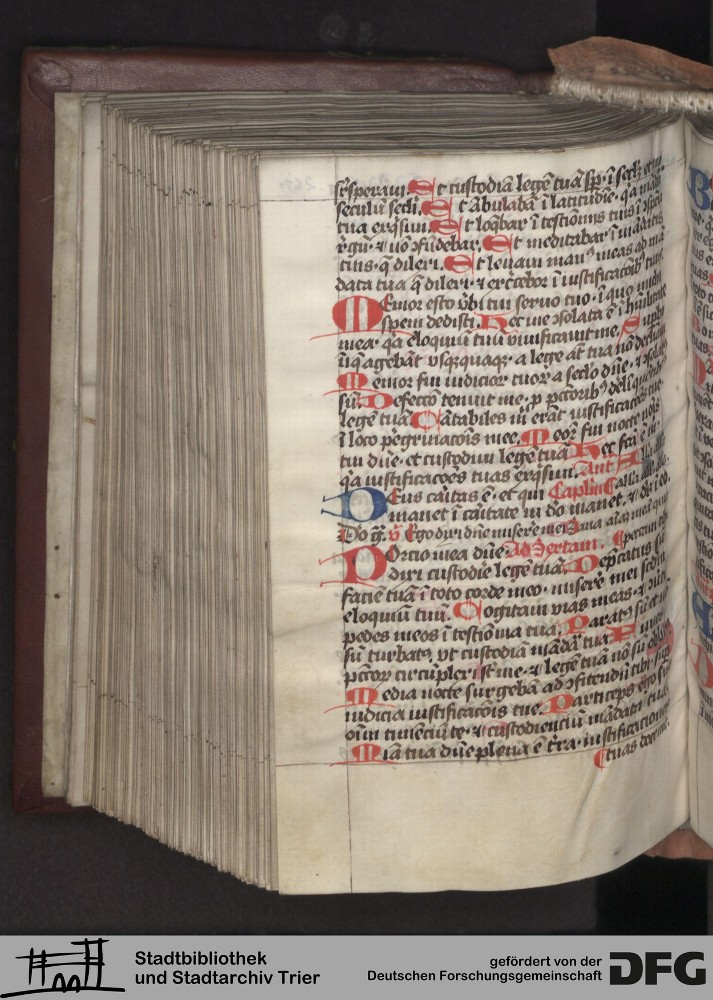 sꝑsperaui. Et custodiā legē tuā sꝑ. ī seclꝫ et in
seculū secli. Et ābulabā ī latitudīe. qͣ mādͣ
tua exqͥsiui. Et loqͣbar ī testiōnijs tuis ī ꝯspcū
regū. ⁊ nō ꝯfūdebar. Et meditabar ī mādatis
tuis. q̄ dilexi. Et leuaui manꝰ meas ad mā
data tua q̄ dilexi. ⁊ exercebor ī iustificacōibꝫ tuis
Memor esto ūbi tui seruo tuo. ī quo michi
spem dedisti. Hec me ꝯsolata ē ī hūilitate
mea. qͣ eloquiū tuū viuificauit me. Supbi
īiq̄ agebāt vsqꝫquaqꝫ. a lege aūt tua nō declinaui
Memor fui iudicioꝝ tuoꝝ a seclo dn̄e. ⁊ ꝯsolatꝰ
sū. Defectō tenuit me. ꝓ pctōribꝫ delīquētibꝫ
legē tuā. Cātabiles m̄ erāt iustificacōes tue.
ī loco peregrinacōis mee. Meōr fui nocte nōis
tui dn̄e. et custodiui legē tuā. Hec fcā ē m̄.
qͣ iustificacōes tuas exqͥsiui. Ant̄ Alla
Deus caritas ē. et qui Caplm̄ alla alla
manet ī caritate in do manet. ⁊ ds̄ ī eo.
Do gr̄. ṽ Ego dixi dn̄e miserere mei
Porcio mea dn̄e. Ad Sextam.
dixi custodire legē tuā. Depcatus sū
faciē tuā ī toto corde meo. miserē mei scdm̄
eloquiū tuū. Cogitaui vias meas. ⁊ ꝯūti
pedes meos ī testiōnia tua. Paratꝰ sū et nō
sū turbatꝰ. vt custodiā mādā tua. Funes
pctōꝝ circūplexi sūt me. ⁊ legē tuā nō sū oblitꝰ
Media nocte surgebā ad ꝯfitendū tibi. sup
iudicia iustificacōis tue. Particeps ego sū
oīm timēciū te. ⁊ custodienciū mādata tua.
Mīa tua dn̄e plena ē tr̄a. iustificaciones
tuas doce me.
Stadtbibliothek
und Stadtarchiv Trier
gefördert von der
Deutschen Forschungsgemeinschaft DFG